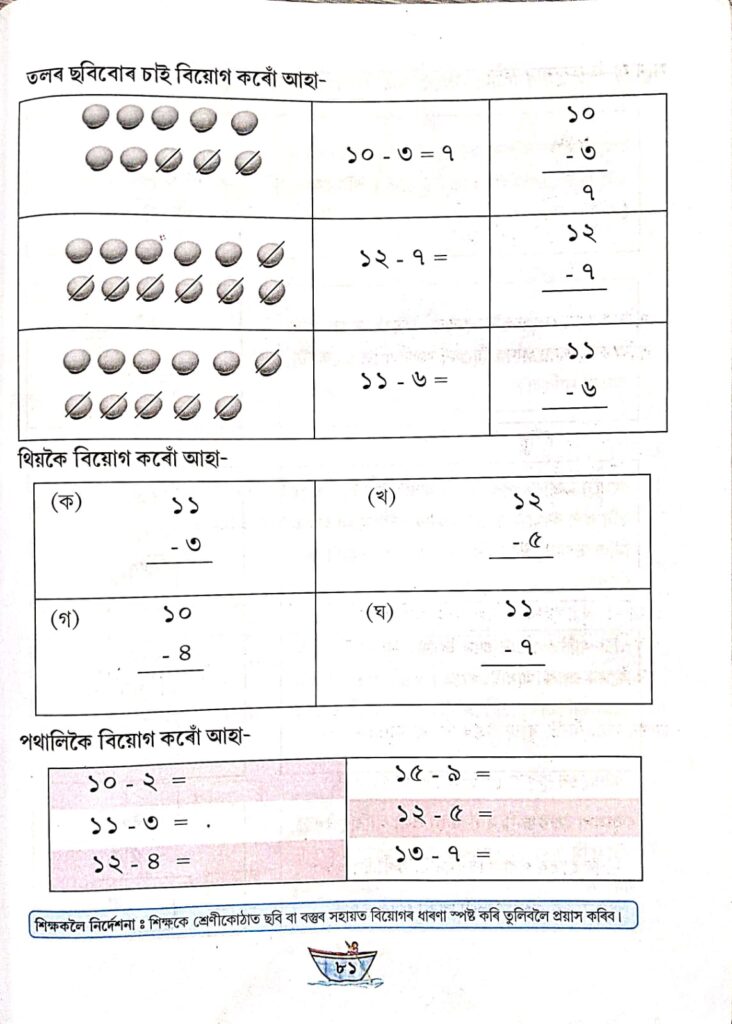 তলৰ ছবিবোৰ চাই বিয়োগ কৰোঁ আহা-
১০ - ৩ = ৭
১০
- ৩
৭
১২ - ৭ =
১২
- ৭
১১ - ৬ =
১১
- ৬
থিয়কৈ বিয়োগ কৰোঁ আহা-
(ক) ১১
- ৩
(খ) ১২
- ৫
(গ) ১০
- ৪
(ঘ) ১১
- ৭
পথালিকৈ বিয়োগ কৰোঁ আহা-
১০ - ২ =
১১ - ৩ =
১২ - ৪ =
১৫ - ৯ =
১২ - ৫ =
১৩ - ৭ =
শিক্ষকলৈ নিৰ্দেশনা : শিক্ষকে শ্ৰেণীকোঠাত ছবি বা বস্তুৰ সহায়ত বিয়োগৰ ধাৰণা স্পষ্ট কৰি তুলিবলৈ প্ৰয়াস কৰিব।
৮১